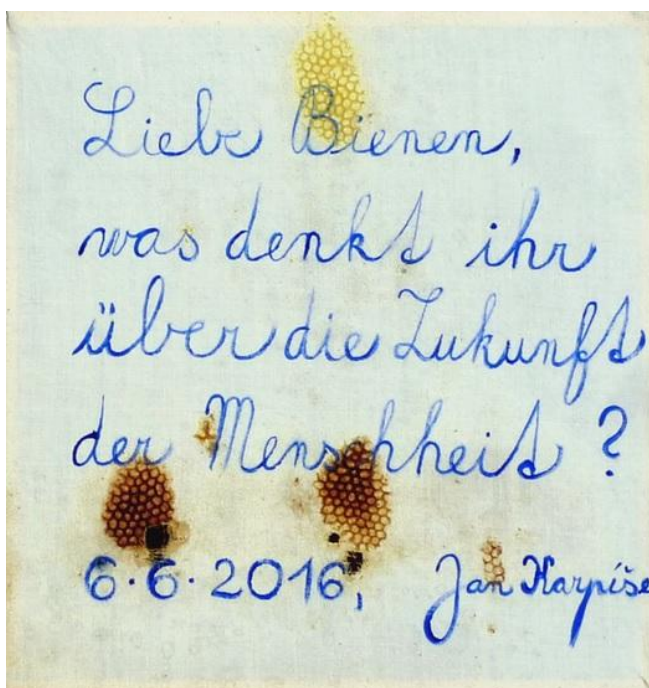 Liebe Bienen,
was denkt ihr
über die Zukunft
der Menschheit ?
6.6.2016, Jan Karpíše